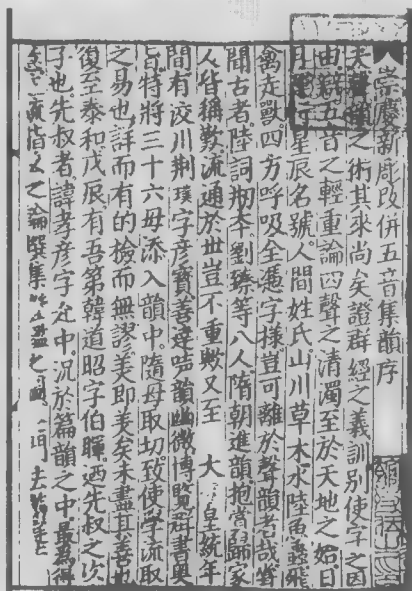 崇慶新彫改併五音集韻序
之術其來尚矣證群經之義訓別使字之因
由辯五音之輕重論四聲之清濁至於天地之始日
月星辰名號人間姓氏山川草木水陸魚飛
禽走獸四方呼吸全憑字樣豈可離於聲韻者哉
聞古者陸詞刱本劉臻等八人隋朝進韻抱賞歸家
人皆稱歎流通於世豈不重歟又至大皇統年
間有洨川荆璞字彥寶善達聲韻幽微博覽群書奧
旨特將三十六母添入韻中隨母取切致使學流取
之易也詳而有的檢而無謬美即美矣未盡其善也
復至泰和戊辰有吾弟韓道昭字伯暉迺先叔之次
子也先叔者諱孝彥字允中況於篇韻之中最爲得
之論撰集